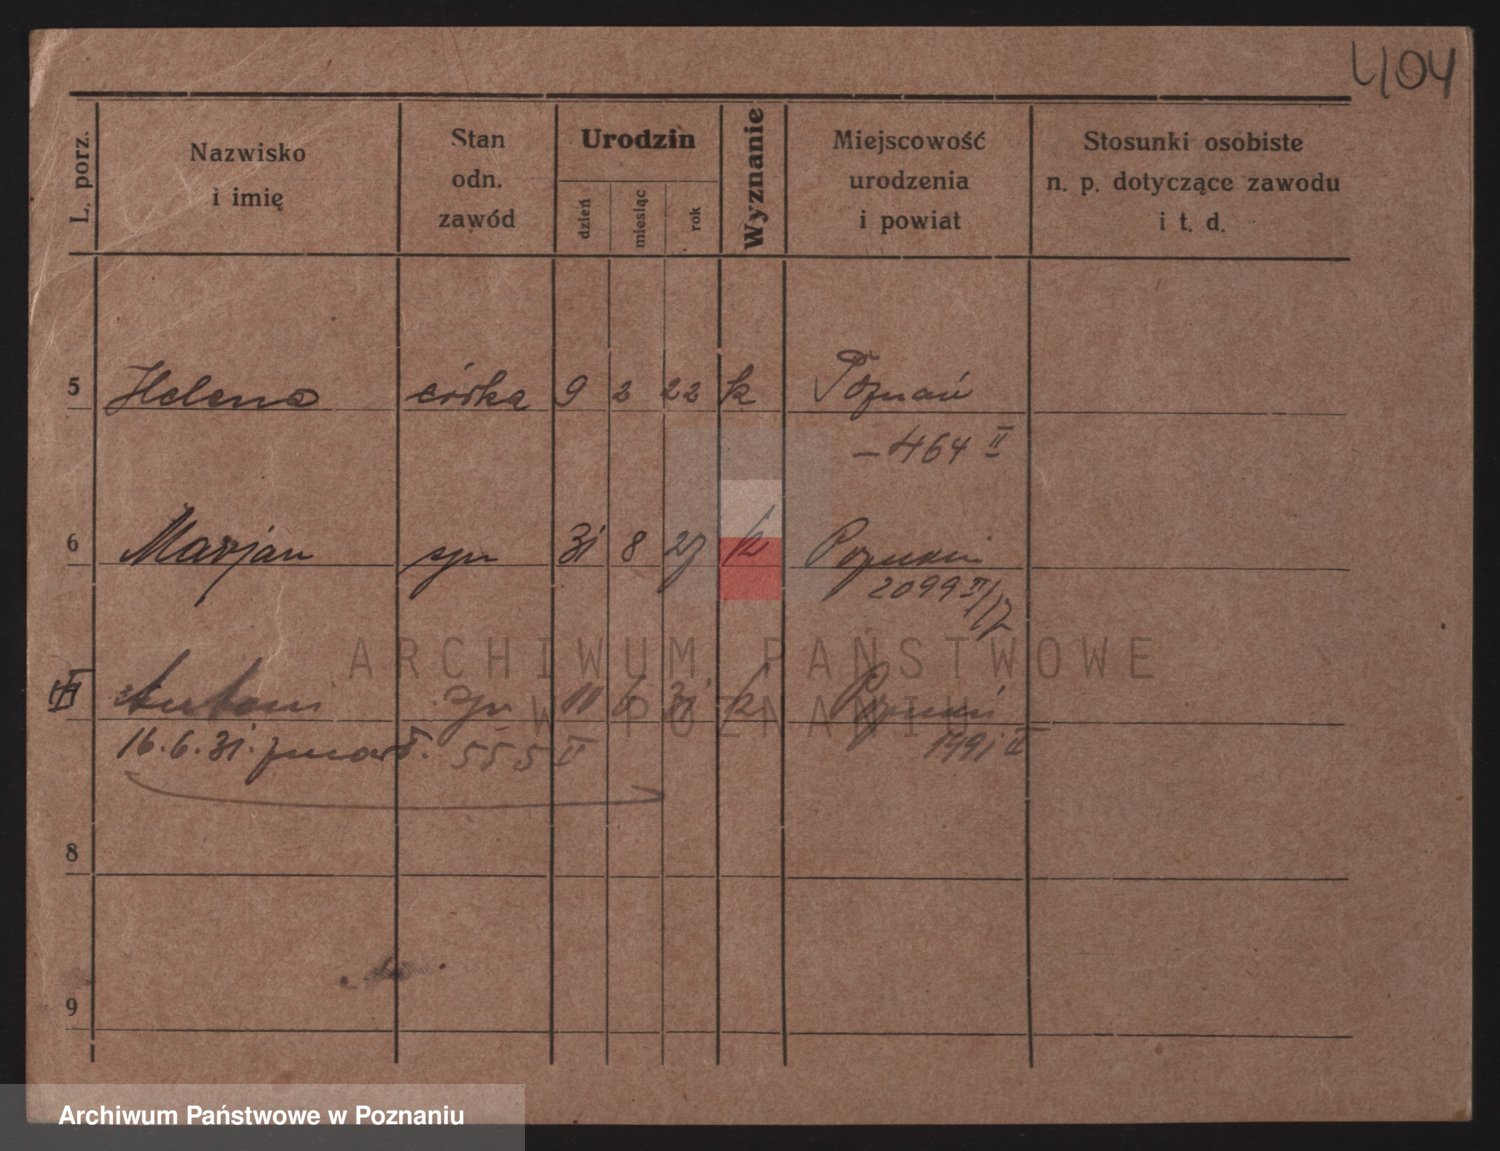 4104
L. porz.
Nazwisko i imię
Stan odn. zawód
Urodzin
dzień
miesiąc
rok
Wyznanie
Miejscowość urodzenia i powiat
Stosunki osobiste n. p. dotyczące zawodu i t. d.
5 Helena córka 9 2 22 k Poznań
– 464 II
6 Marjan syn 31 8 27 k Poznań
2099 II/17
Antoni syn 11 6 31 k Poznań
16.6.31. zmarł. 555 II 1191 II
8
9
ARCHIWUM PAŃSTWOWE
W POZNANIU
Archiwum Państwowe w Poznaniu